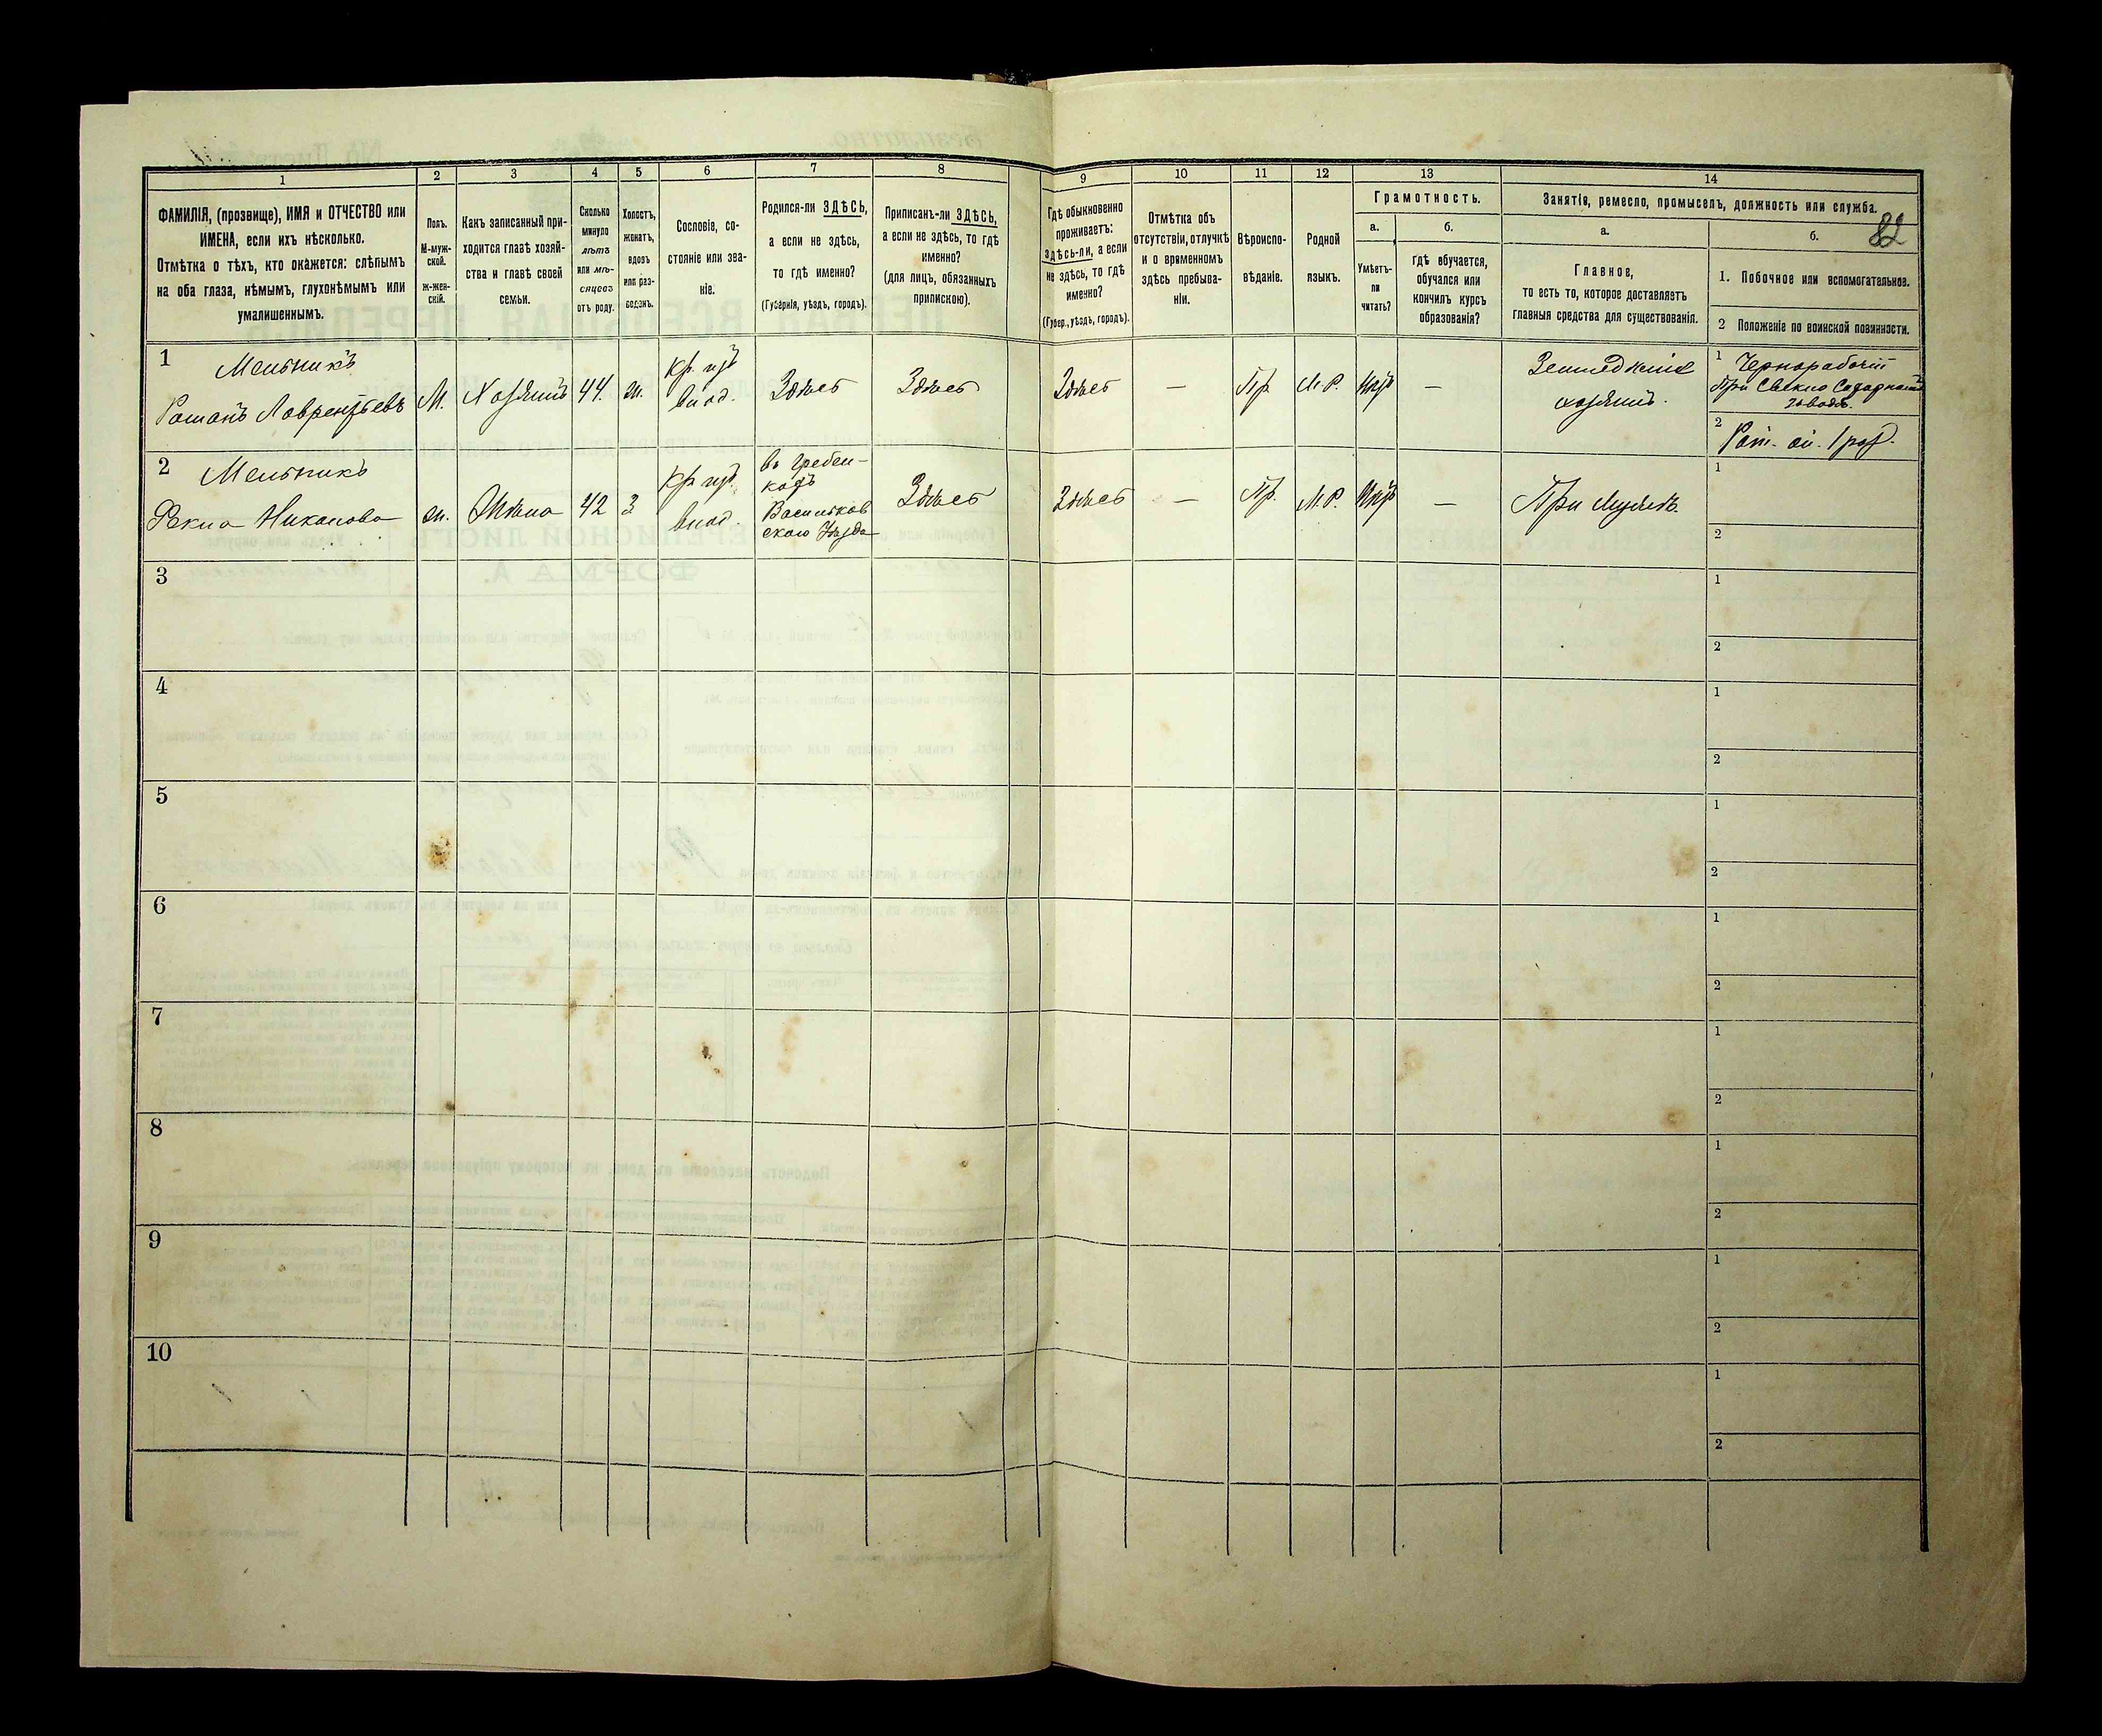 82
1 2 3 4 5 6 7 8 9 10 11 12 13 14
ФАМИЛІЯ, (прозвище), ИМЯ и ОТЧЕСТВО или
ИМЕНА, если ихъ нѣсколько.
Отмѣтка о тѣхъ, кто окажется: слѣпымъ
на оба глаза, нѣмымъ, глухонѣмымъ или
умалишеннымъ.
Полъ.
М-муж-
ской.
Ж-жен-
скій.
Какъ записанный при-
ходится главѣ хозяй-
ства и главѣ своей
семьи.
Сколько
минуло
лѣтъ
или мѣ-
сяцевъ
отъ роду.
Холостъ,
женатъ,
вдовъ
или раз-
веденъ.
Сословіе, со-
стояніе или зва-
ніе.
Родился-ли ЗДѢСЬ,
а если не здѣсь,
то гдѣ именно?
(Губернія, уѣздъ, городъ).
Приписанъ-ли ЗДѢСЬ,
а если не здѣсь, то гдѣ
именно?
(для лицъ, обязанныхъ
припискою).
Гдѣ обыкновенно
проживаетъ:
здѣсь-ли, а если
не здѣсь, то гдѣ
именно?
(Губер., уѣздъ, городъ).
Отмѣтка объ
отсутствіи, отлучкѣ
и о временномъ
здѣсь пребыва-
ніи.
Вѣроиспо-
вѣданіе.
Родной
языкъ.
Грамотность.
а.
Умѣетъ-
ли
читать?
б.
гдѣ обучается,
обучался или
кончилъ курсъ
образованія?
Занятіе, ремесло, промыселъ, должность или служба.
а.
Главное,
то есть то, которое доставляетъ
главныя средства для существованія.
б.
1. Побочное или вспомогательное.
2 Положеніе по воинской повинности.
1 Мельникъ
Романъ Лаврентьевъ
М.
Хозяинъ
44
ж.
кр. изъ
влад.
Здѣсь
Здѣсь
Здѣсь
—
Пр.
М. Р.
—
Земледѣліе
хозяинъ.
1 Чернорабочій
При Свекло
заводѣ.
2 Рат. оп. 1 раз.
2 Мельникъ
Фекла
ж.
Жена
42
З
кр. изъ
влад.
въ Гребен-
кахъ
Васильков
скаго Уѣзда
Здѣсь
Здѣсь
—
Пр.
М. Р.
—
При мужѣ
1
2
3
1
2
4
1
2
5
1
2
6
1
2
7
1
2
8
1
2
9
1
2
10
1
2